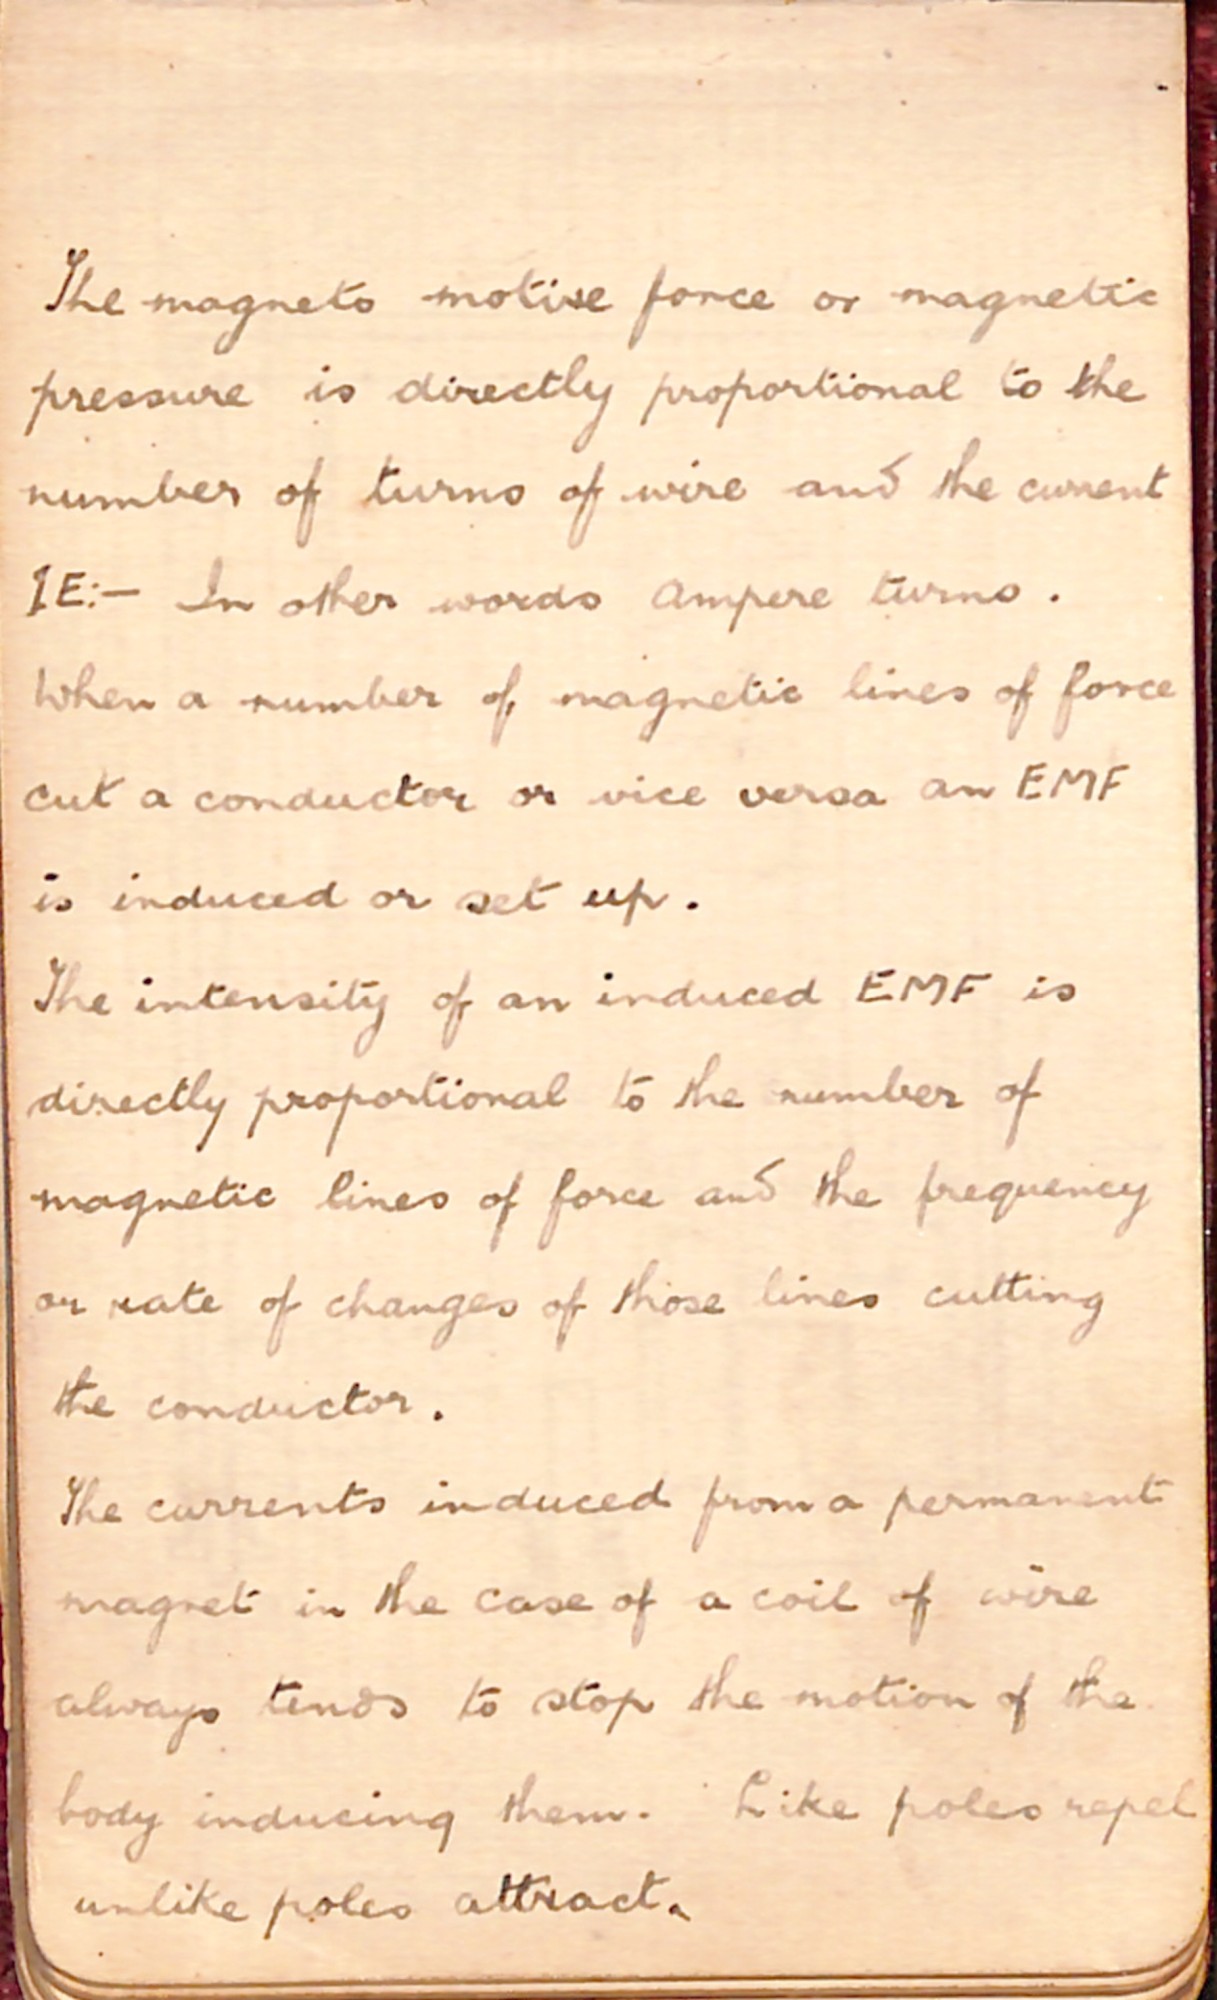 The magneto motive force or magnetic
pressure is directly proportional to the
number of turns of wire and the current
IE:- In other words Ampere turns.
When a number of magnetic lines of force
cut a conductor or vice versa an EMF
is induced or set up.
The intensity of an induced EMF is
directly proportional to the number of
magnetic lines of force and the frequency
or rate of changes of those lines cutting
the conductor.
The currents induced from a permanent
magnet in the case of a coil of wire
always tends to stop the motion of the
body inducing them. Like poles repel
unlike poles attract.